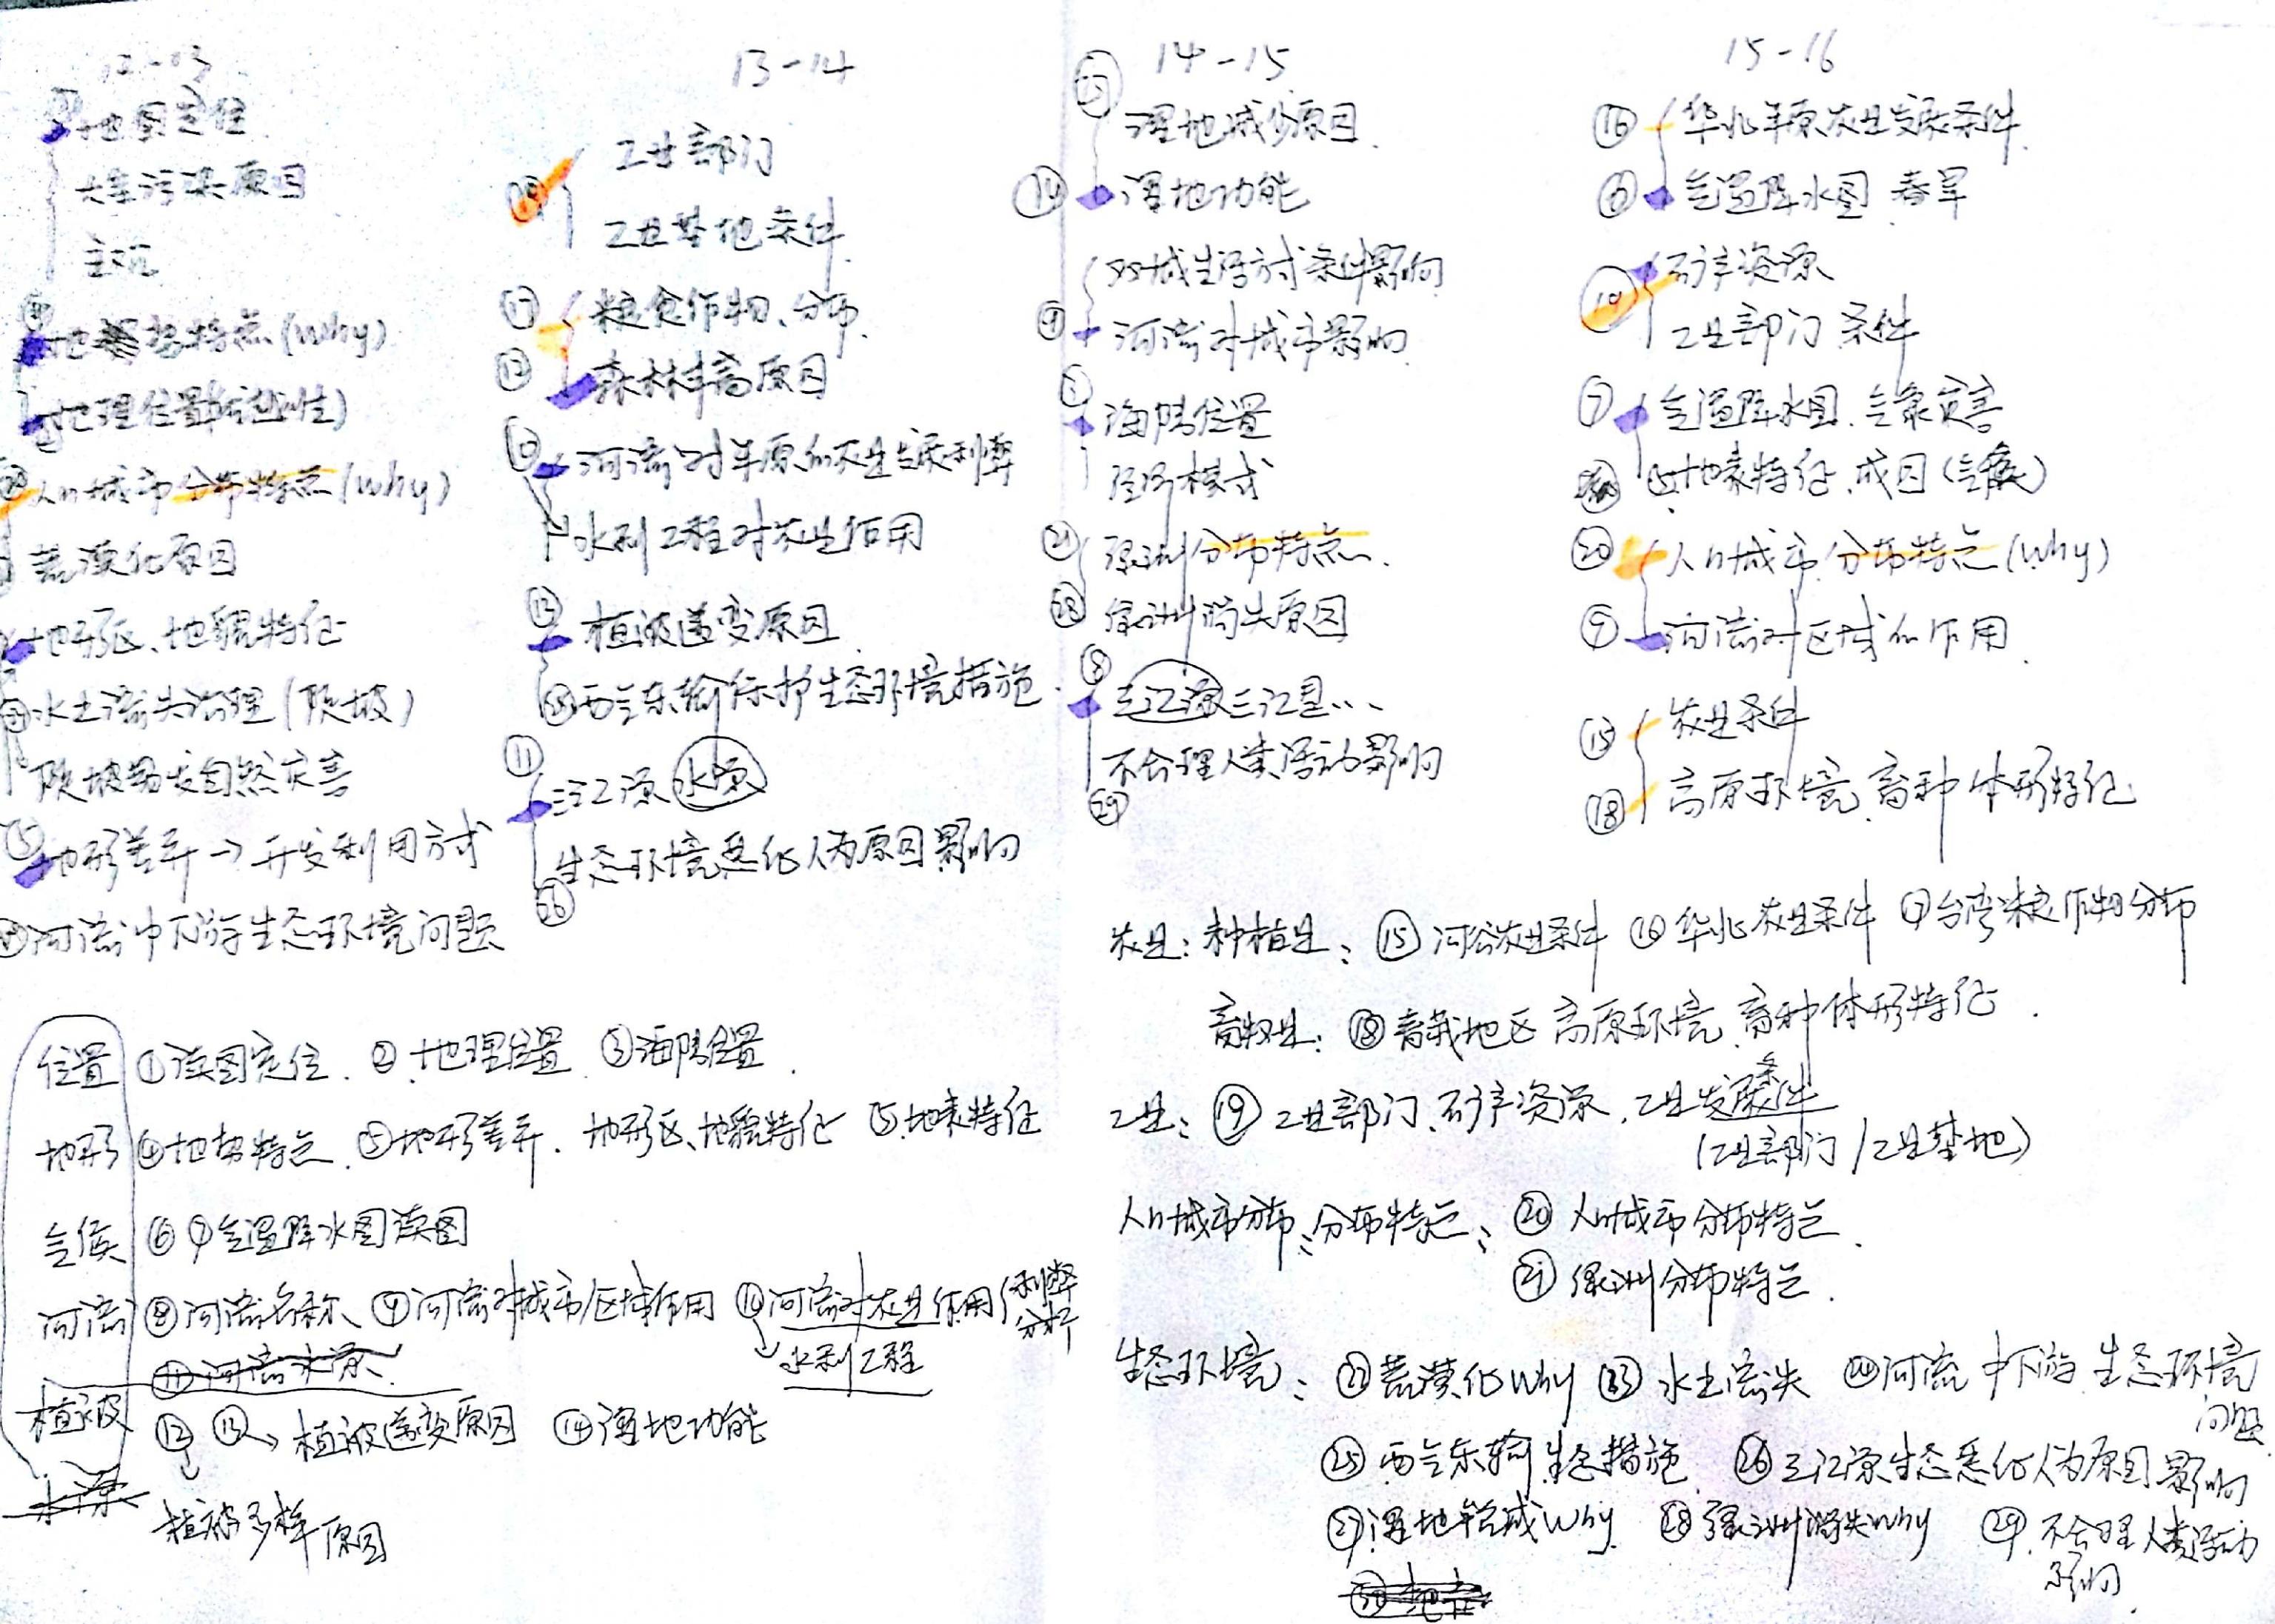 12-13
读图定位
大气污染原因
地势特点(Why)
地理位置(
人口城市分布特点(Why)
荒漠化原因
地形区、地貌特征
水土流失治理(陡坡)
陡坡易发自然灾害
⑤地形差异→开发利用方式
河流中下游生态环境问题
13-14
⑲ 工业部门
工业基地条件
⑰ 粮食作物、分布
⑫ 森林丰富原因
⑩ 河流对平原的农业发展利弊
水利工程对农业作用
⑬ 植被递变原因
㉕西气东输保护生态环境措施
⑪ 三江源 水源
生态环境恶化人为原因影响
㉖
14-15
㉗ 湿地减少原因
⑭ 湿地功能
对城生活方式条件影响
⑨ 河流对城市影响
③ 海陆位置
经济模式
㉑ 绿洲分布特点
㉘ 绿洲消失原因
⑧ 三江源三江是...
不合理人类活动影响
㉙
15-16
⑯ 华北平原农业发展条件
⑥ 气温降水图 春旱
⑲ 矿产资源
工业部门 条件
⑦ 气温降水图、气象灾害
⑤地表特征、成因(气候)
⑳ 人口城市分布特点(Why)
⑨ 河流对区域的作用
⑮ 农业条件
⑱ 高原环境 畜种体形特征
位置 ①读图定位、②地理位置 ③海陆位置
地形 ④地势特点、⑤地形差异、地形区、地貌特征 ⑤地表特征
气候 ⑥⑦气温降水图读图
河流 ⑧河流名称、⑨河流对城市/区域作用 ⑩河流对农业作用(利弊分析
↓水利工程
⑪河流水源
植被 ⑫ ⑬→植被递变原因 ⑭湿地功能
水源
植被多样原因
农业：种植业：⑮河谷农业条件 ⑯华北农业条件 ⑰台湾粮食作物分布
畜牧业：⑱青藏地区 高原环境、畜种体形特征
工业：⑲工业部门、矿产资源、工业发展条件
(工业部门/工业基地)
人口城市分布：分布特点：⑳人口城市分布特点
㉑绿洲分布特点
生态环境：㉒荒漠化Why ㉓水土流失 ㉔河流中下游生态环境问题
㉕西气东输生态措施 ㉖三江源生态恶化人为原因影响
㉗湿地 减Why ㉘绿洲消失Why ㉙不合理人类活动影响